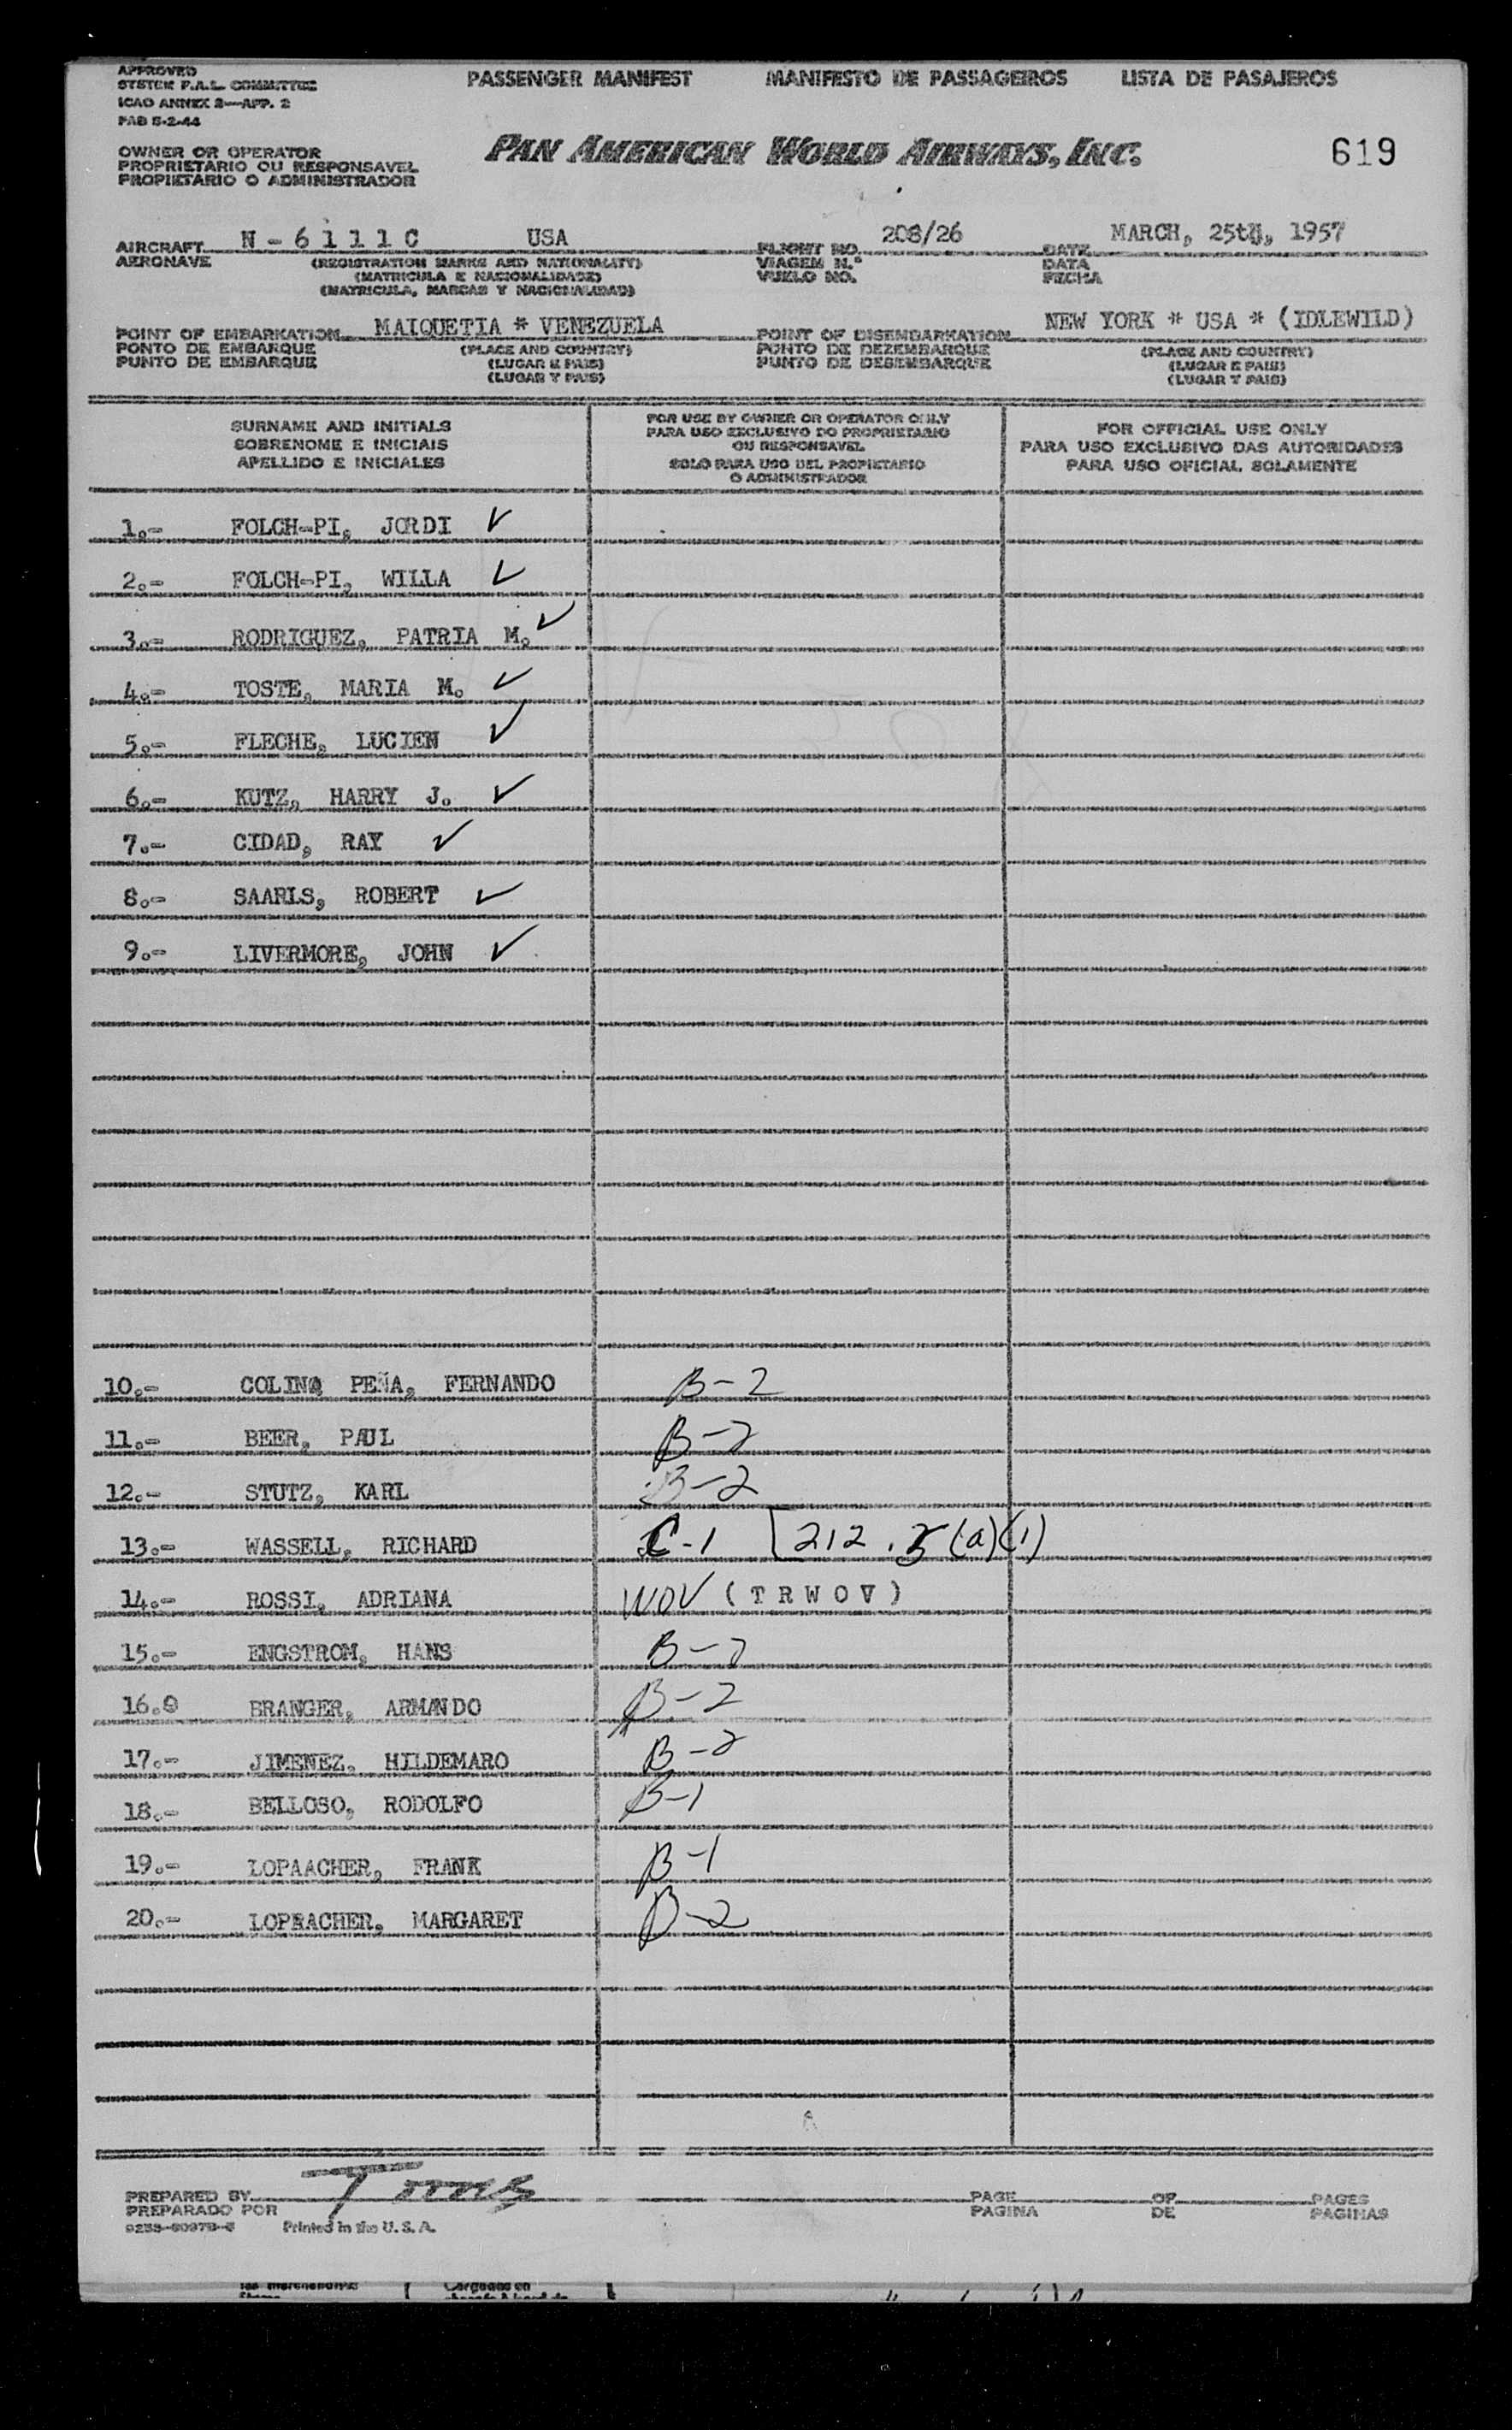 APPROVED
SYSTEM F.A.L. COMMITTEE
ICAO ANNEX 9—APP. 2
PAB 5-2-44
PASSENGER MANIFEST MANIFESTO DE PASSAGEIROS LISTA DE PASAJEROS
OWNER OR OPERATOR
PROPRIETARIO OU RESPONSAVEL
PROPIETARIO O ADMINISTRADOR
PAN AMERICAN WORLD AIRWAYS, INC.
619
AIRCRAFT N-6111C USA FLIGHT NO. 208/26 DATE MARCH, 25tH, 1957
AERONAVE (REGISTRATION MARKS AND NATIONALITY) VIAGEM N.º DATA
(MATRICULA E NACIONALIDADE) VUELO NO. FECHA
(MATRICULA, MARCAS Y NACIONALIDAD)
POINT OF EMBARKATION MAIQUETIA * VENEZUELA POINT OF DISEMBARKATION NEW YORK * USA * (IDLEWILD)
PONTO DE EMBARQUE (PLACE AND COUNTRY) PONTO DE DEZEMBARQUE (PLACE AND COUNTRY)
PUNTO DE EMBARQUE (LUGAR E PAIS) PUNTO DE DESEMBARQUE (LUGAR E PAIS)
(LUGAR Y PAIS) (LUGAR Y PAIS)
SURNAME AND INITIALS
SOBRENOME E INICIAIS
APELLIDO E INICIALES
FOR USE BY OWNER OR OPERATOR ONLY
PARA USO EXCLUSIVO DO PROPRIETARIO
OU RESPONSAVEL
SOLO PARA USO DEL PROPIETARIO
O ADMINISTRADOR
FOR OFFICIAL USE ONLY
PARA USO EXCLUSIVO DAS AUTORIDADES
PARA USO OFICIAL SOLAMENTE
1.- FOLCH-PI, JORDI ✓
2.- FOLCH-PI, WILLA ✓
3.- RODRIGUEZ, PATRIA M. ✓
4.- TOSTE, MARIA M. ✓
5.- FLECHE, LUCIEN ✓
6.- KUTZ, HARRY J. ✓
7.- CIDAD, RAY ✓
8.- SAARLS, ROBERT ✓
9.- LIVERMORE, JOHN ✓
10.- COLINO PEÑA, FERNANDO B-2
11.- BEER, PAUL B-2
12.- STUTZ, KARL B-2
13.- WASSELL, RICHARD C-1 [212.3(a)(1)
14.- ROSSI, ADRIANA WOV (TRWOV)
15.- ENGSTROM, HANS B-2
16.- BRANGER, ARMANDO B-2
17.- JIMENEZ, HILDEMARO B-2
18.- BELLOSO, RODOLFO B-1
19.- LOPAACHER, FRANK B-1
20.- LOPRACHER, MARGARET B-2
PREPARED BY PAGE OF PAGES
PREPARADO POR PAGINA DE PAGINAS
Printed in the U. S. A.